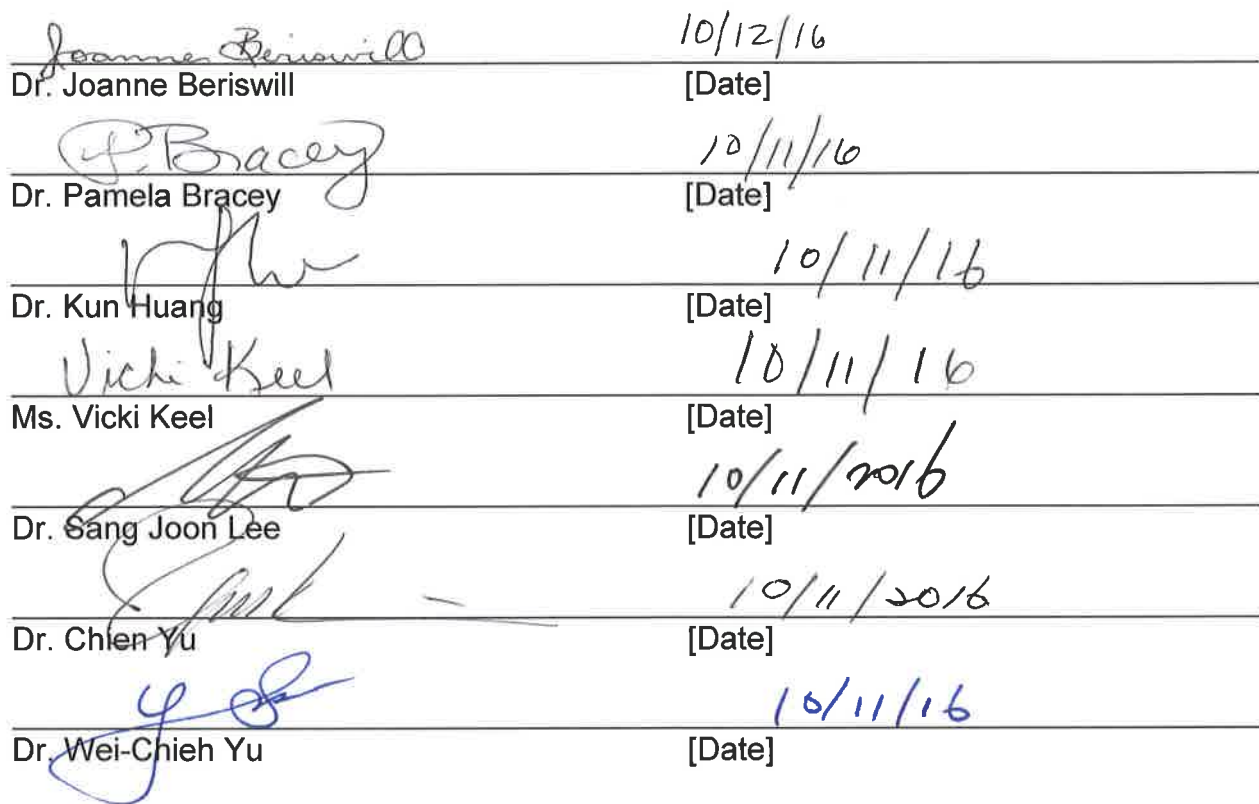 Joanne Beriswill 10/12/16
Dr. Joanne Beriswill [Date]
P. Bracey 10/11/16
Dr. Pamela Bracey [Date]
10/11/16
Dr. Kun Huang [Date]
Vicki Keel 10/11/16
Ms. Vicki Keel [Date]
10/11/2016
Dr. Sang Joon Lee [Date]
10/11/2016
Dr. Chien Yu [Date]
10/11/16
Dr. Wei-Chieh Yu [Date]